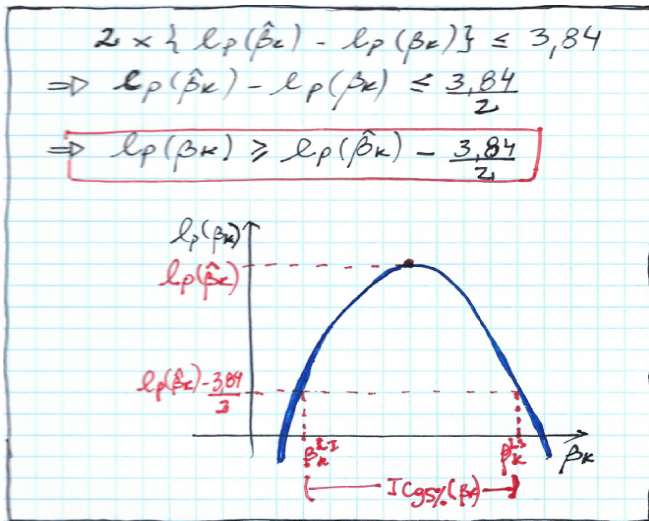 2 × { ℓp(β̂κ) - ℓp(βκ)} ≤ 3,84
⇒ ℓp(β̂κ) - ℓp(βκ) ≤ 3,84/2
⇒ ℓp(βκ) ≥ ℓp(β̂κ) - 3,84/2
ℓp(βκ)
ℓp(β̂κ)
ℓp(β̂κ) - 3,84/2
βκ^LI βκ^LS βκ
IC95%(βκ)